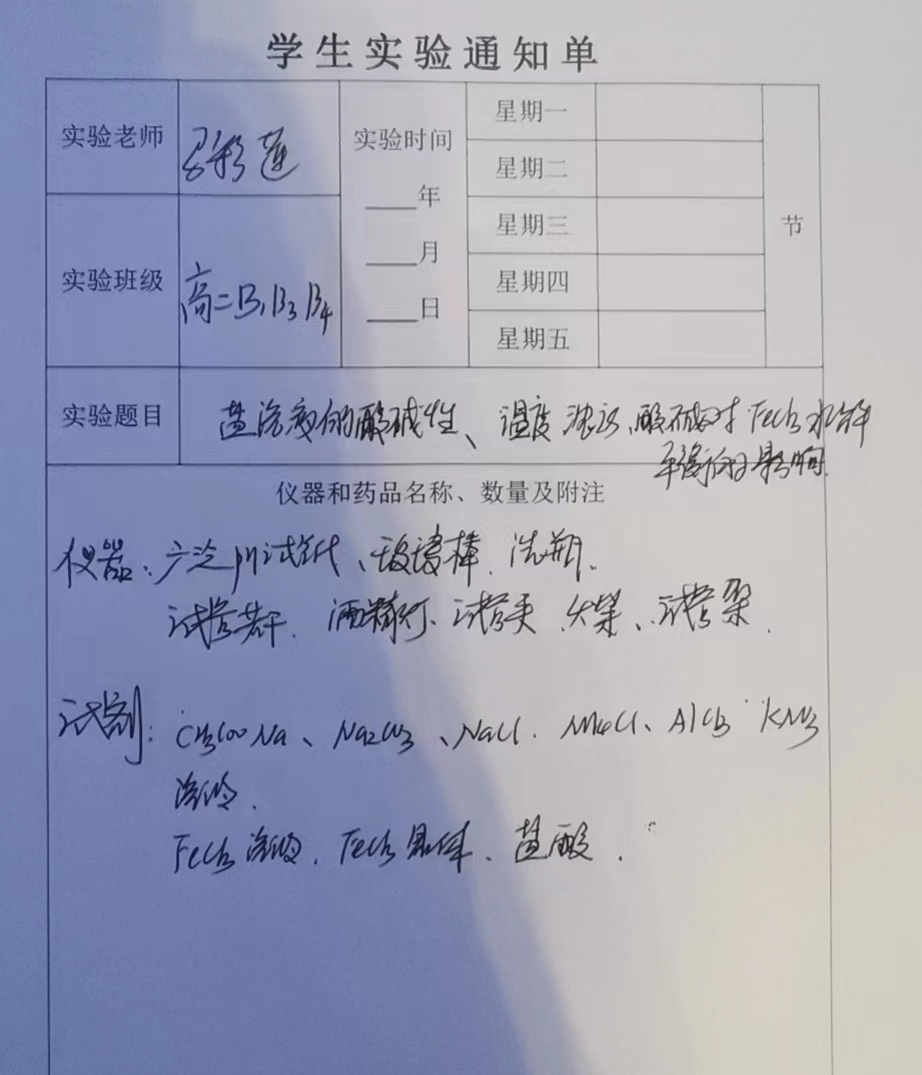 学生实验通知单
实验老师 吕彩莲 实验时间 星期一
星期二
___年
星期三 节
___月
实验班级 高二B1 B3 B4 星期四
___日
星期五
实验题目 盐溶液的酸碱性、温度 浓度、酸碱对 FeCl3 水解
平衡的影响
仪器和药品名称、数量及附注
仪器：广泛pH试纸、玻璃棒、洗瓶、
试管若干、酒精灯、试管夹、火柴、试管架.
试剂：CH3COONa、Na2CO3、NaCl、NH4Cl、AlCl3、KNO3
溶液.
FeCl3溶液、FeCl3晶体、盐酸.